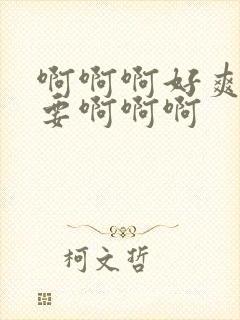 啊啊啊好爽
要啊啊啊
柯文哲